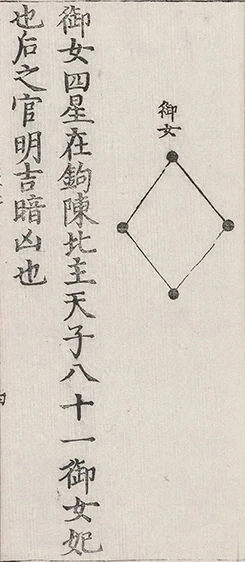 御女
御女四星在鉤陳北主天子八十一御女妃
也后之官明吉暗凶也